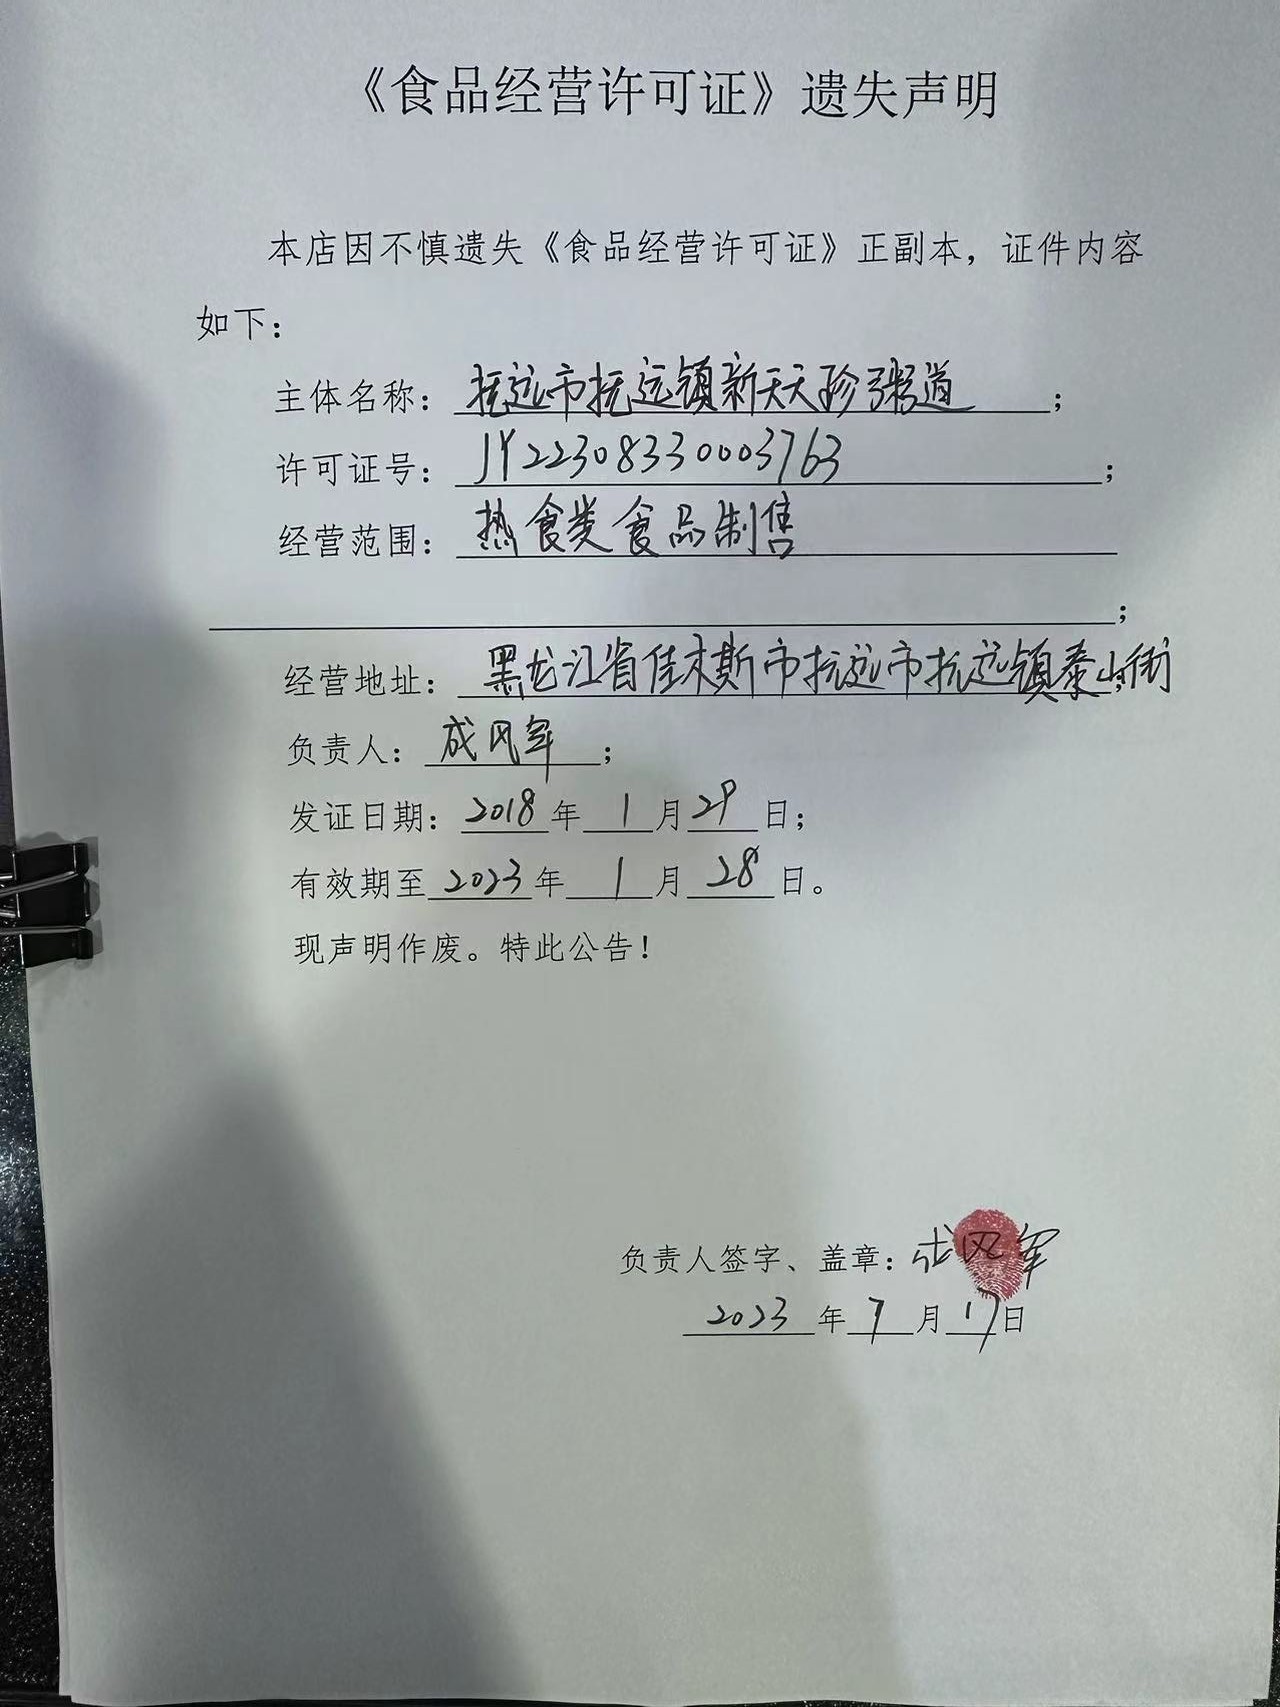 《食品经营许可证》遗失声明
本店因不慎遗失《食品经营许可证》正副本，证件内容
如下：
主体名称：抚远市抚远镇新天天珍粥道；
许可证号：JY22308330003763；
经营范围：热食类食品制售
；
经营地址：黑龙江省佳木斯市抚远市抚远镇泰山街；
负责人：成风军；
发证日期：2018年1月29日；
有效期至2023年1月28日。
现声明作废。特此公告！
负责人签字、盖章：成风军
2023年7月17日